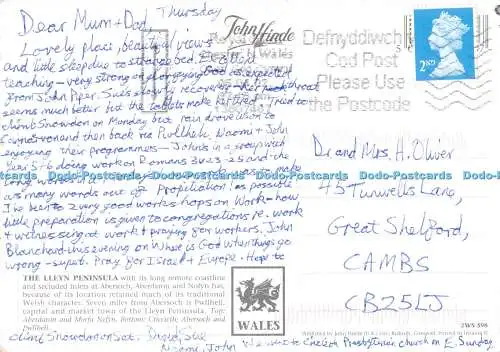 Dear Mum + Dad, Thursday
Lovely place, beautiful views
and little sleep due to strange bed. Excellent
teaching - very strong on glorifying God as expected
from John Piper. Sue's slowly recovering - her throat
seems much better but the tablets make her tired. Tried to
climb Snowdon on Monday but rain drove us on to
Caernarvon and then back via Pwllheli. Naomi + John
enjoying their programmes - John's in a group with
Year 5 + 6 doing work on Romans 3 v 23-25 and the
long words in make
as many words out of 'Propitiation' as possible
I've been to 2 very good workshops on Work - how
little preparation is given to congregations re. work
+ witnessing at work + praying for workers. John
Blanchard this evening on Where is God when things go
wrong - super. Pray for Israel + Europe. Hope to
climb Snowdon on Sat. David, Sue
Naomi, John
We went to Presbyterian church on E. Sunday
THE LLEYN PENINSULA with its long remote coastline
and secluded inlets at Abersoch, Aberdaron and Nefyn has,
because of its location retained much of its traditional
Welsh character. Seven miles from Abersoch is Pwllheli,
capital and market town of the Lleyn Peninsula. Top:
Aberdaron and Morfa Nefyn. Bottom: Criccieth, Abersoch and
Pwllheli.
WALES
John Hinde
Defnyddiwch
Cod Post
Please Use
the Postcode
2ND
Dr. and Mrs. H. Oliver
45 Tunwells Lane,
Great Shelford,
CAMBS
CB2 5LJ
2WS 598
Dodo-Postcards Dodo-Postcards Dodo-Postcards Dodo-Postcards